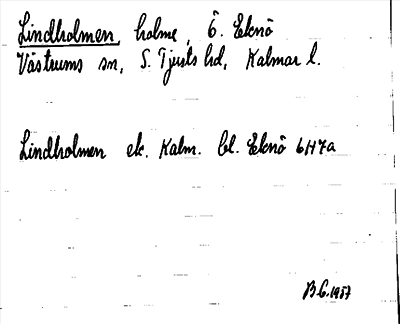 Lindholmen, holme, Ö. Eknö
Västrums sn, S. Tjusts hd, Kalmar l.
Lindholmen ek. Kalm. bl. Eknö 6H7a
B.G. 1957